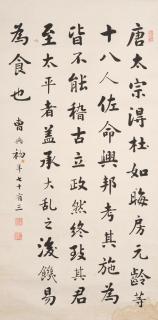 唐太宗得杜如晦房元齡等
十八人佐命興邦考其施為
皆不能稽古立政然終致其君
至太平者蓋承大亂之後饑易
為食也 曹 年七十有三